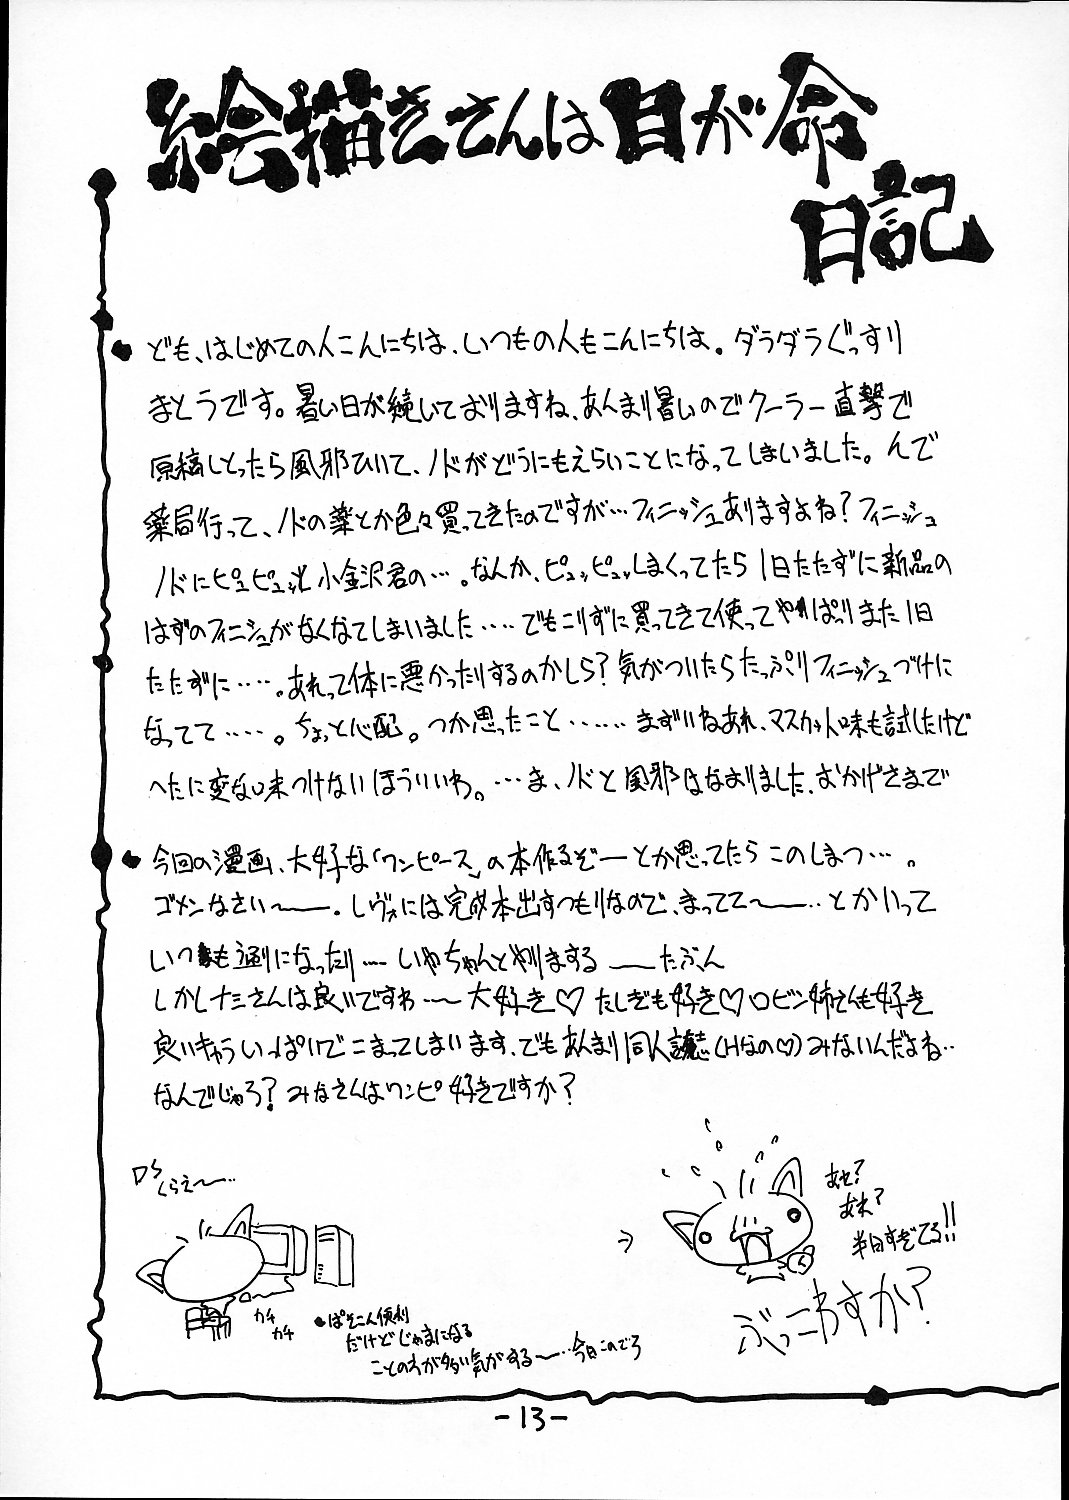 絵描きさんは目が命
日記
ども、はじめての人こんにちは、いつもの人もこんにちは。ダラダラぐっすり
まとうです。暑い日が続いておりますね、あんまり暑いのでクーラー直撃で
原稿しとったら風邪ひいて、ノドがどうにもえらいことになってしまいました。んで
薬局行って、ノドの薬とか色々買ってきたのですが…フィニッシュありますよね?フィニッシュ
ノドにピュピュッと小金沢君の…。なんか、ピュッピュッしまくってたら1日たたずに新品の
はずのフィニシュがなくなてしまいました‥‥でもこりずに買ってきて使ってやっぱりまた1日
たたずに‥‥。あれって体に悪かったりするのかしら?気がついたらたっぷりフィニッシュづけに
なってて‥‥。ちょっと心配。つか思ったこと‥‥‥まずいねあれ、マスカット味も試したけど
へたに変な味つけないほういいわ。…ま、ノドと風邪はなおりました、おかげさまで
今回の漫画、大好な「ワンピース」の本作るぞーとか思ってたらこのしまつ…。
ゴメンなさい〜ー。レヴォには完成本出すつもりなので、まってて〜ー‥とかいって
いつも通りになったり‥‥いやちゃんとやりまする ーたぶん
しかしナミさんは良いですわ〜大好き♡たしぎも好き♡ロビン姉さんも好き
良いきゃらいっぱいでこまってしまいます、でもあんまり同人誌(Hなの♡)みないんだよね‥
なんでじゃろ?みなさんはワンピ好きですか?
くらえ〜‥
カチ
カチ
ぱそこん便利
だけどじゃまになる
ことのが多い気がする〜‥今日このごろ
あせ?
あれ?
半日すぎてる!!
ぶっこわすか?
-13-